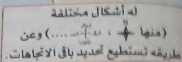 له أشكال مختلفة
(منها ، ....) وعن
طريقه تستطيع تحديد باقى الاتجاهات.